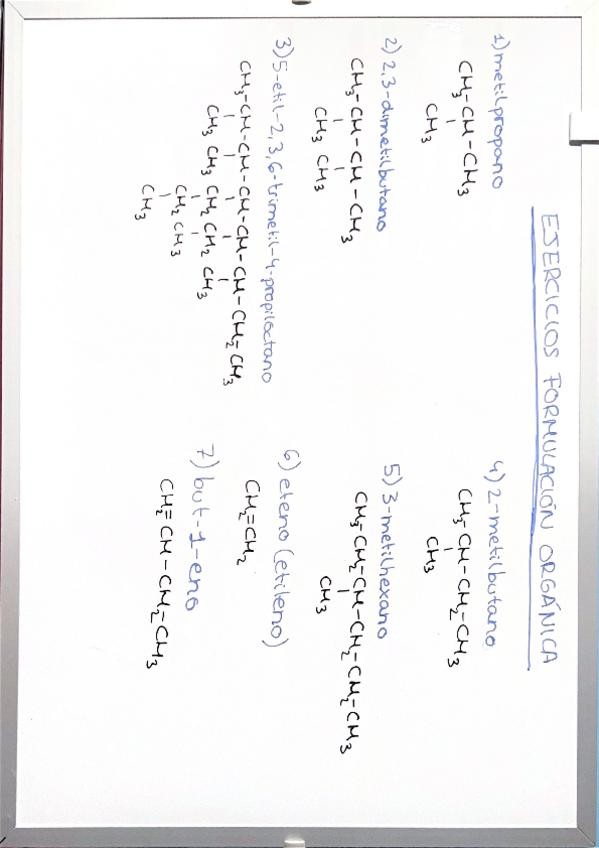 EJERCICIOS FORMULACIÓN ORGÁNICA
1) metilpropano
CH3-CH-CH3
CH3
2) 2,3-dimetilbutano
CH3-CH-CH-CH3
CH3 CH3
3) 5-etil-2,3,6-trimetil-4-propiloctano
CH3-CH-CH-CH-CH-CH-CH2-CH3
CH3 CH3 CH2 CH2 CH3
CH2 CH3
CH3
4) 2-metilbutano
CH3-CH-CH2-CH3
CH3
5) 3-metilhexano
CH3-CH2-CH-CH2-CH2-CH3
CH3
6) eteno (etileno)
CH2=CH2
7) but-1-eno
CH2=CH-CH2-CH3